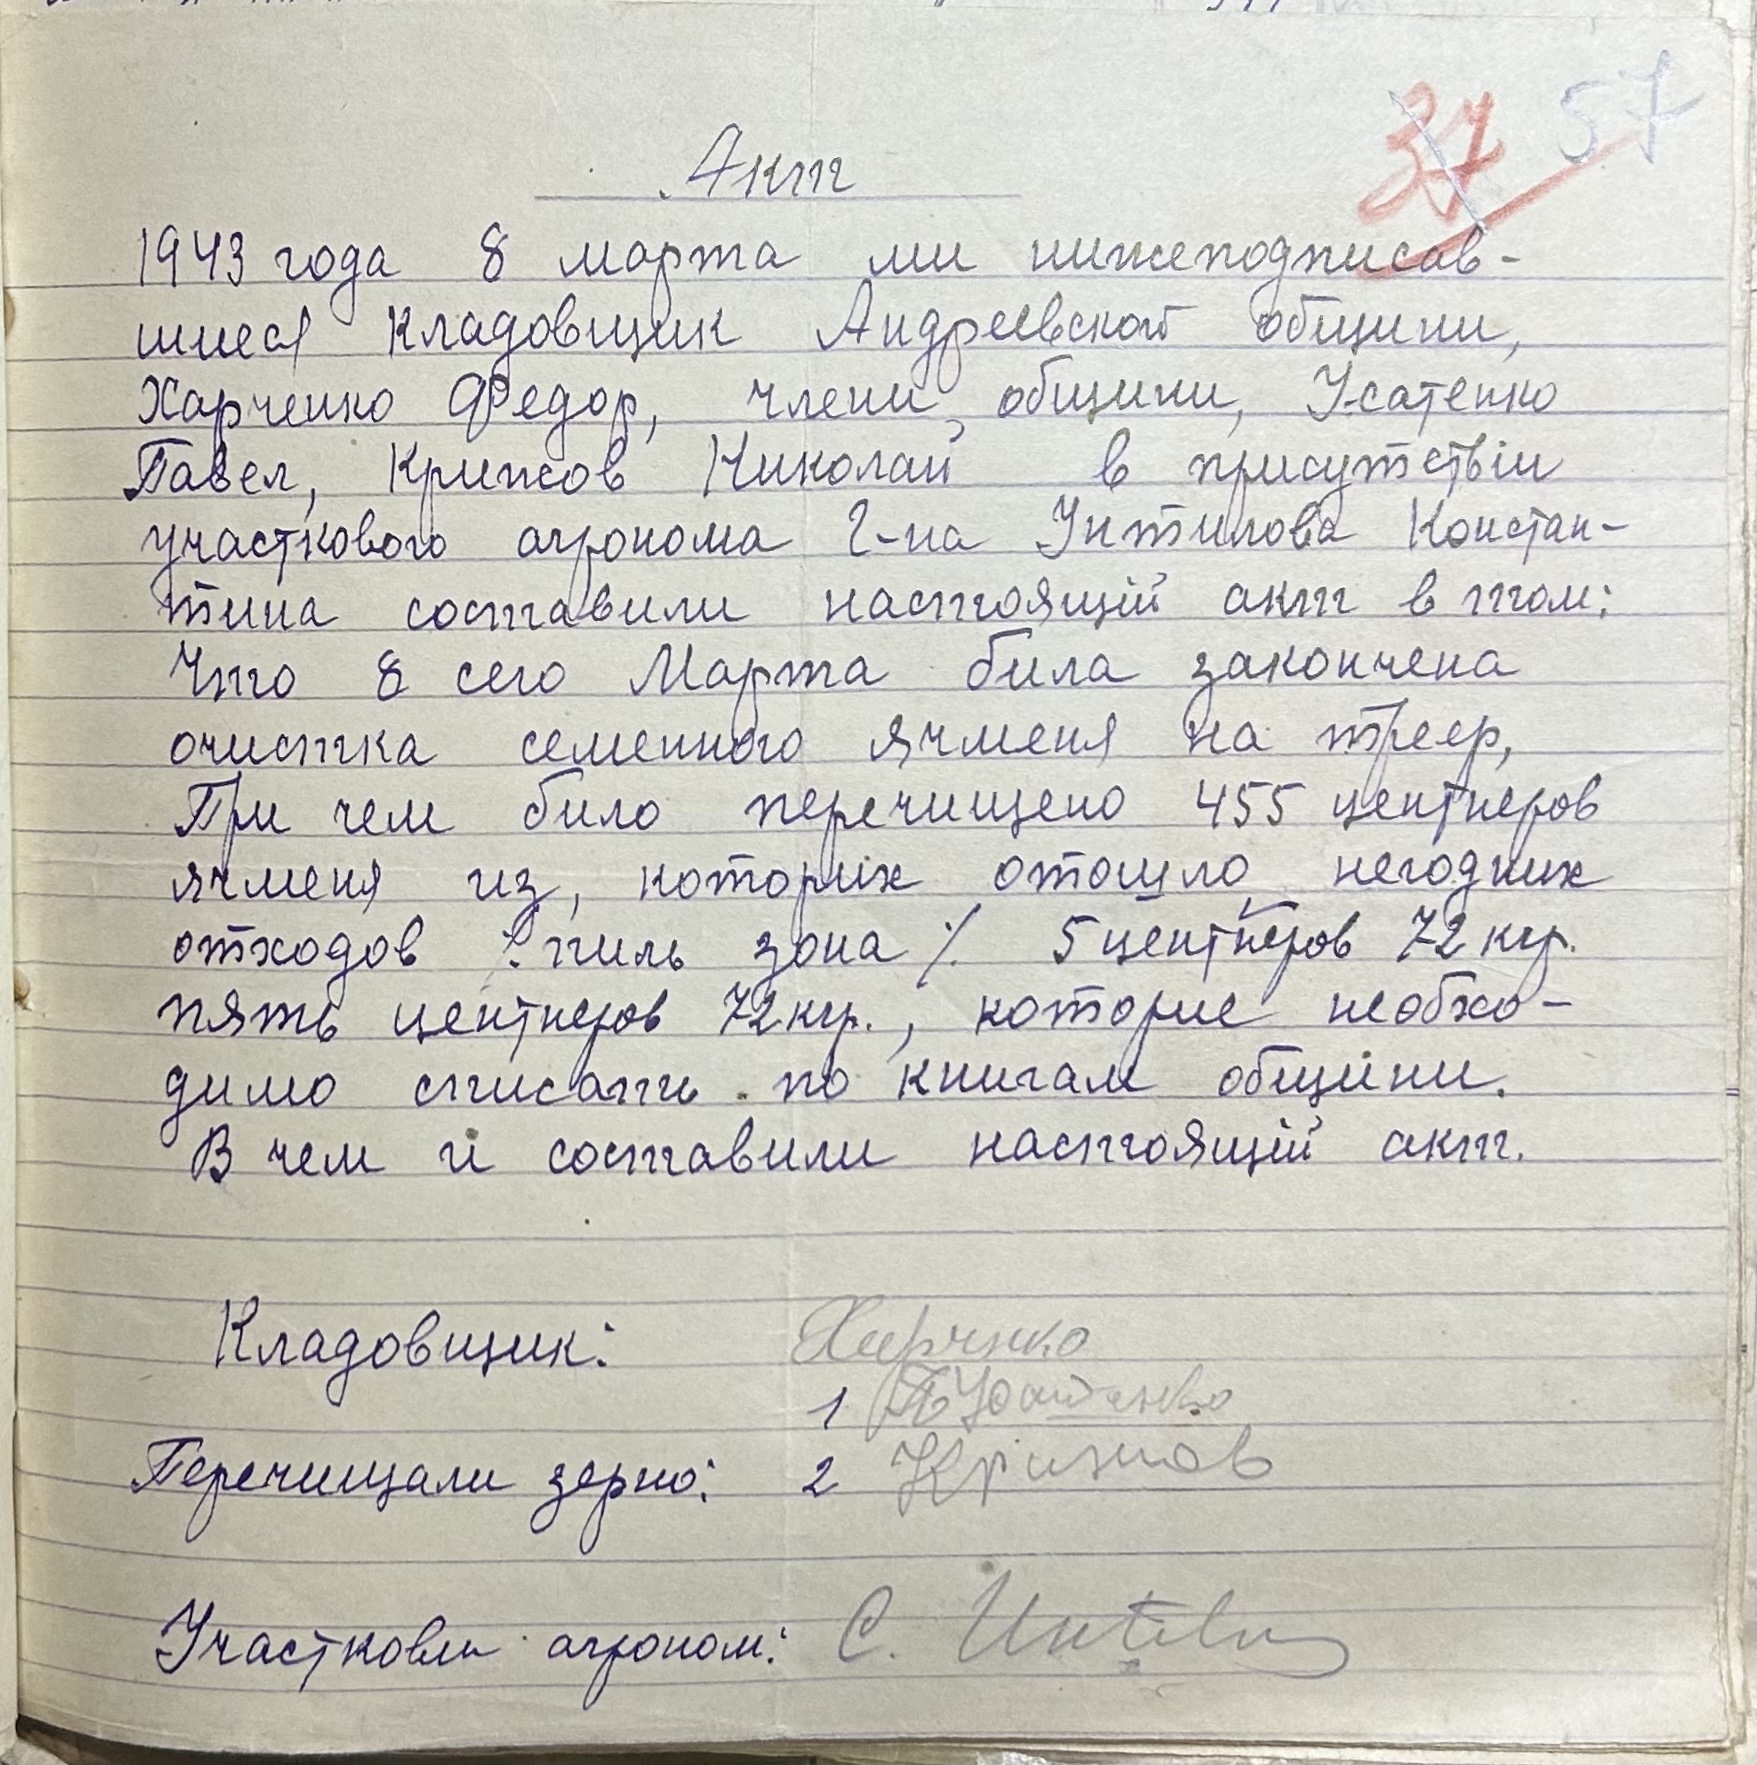 37 57
Акт
1943 года 8 марта ми нижеподписав-
шиеся кладовщик Андреевской общини,
Харченко Федор, члени, общини, Усатенко
Павел, Крижов Николай в присутствіи
участкового агронома Г-на Унтилова Констан-
тина составили настоящій акт в том:
Что 8 сего Марта била закончена
очистка семенного ячменя на треер,
При чем било перечищено 455 центнеров
ячменя из, которих отошло негодних
отходов ٪ пиль зона ٪ 5 центнеров 72 кгр.
пять центнеров 72 кгр., которие необхо-
димо списать по книгам общини.
В чем и составили настоящій акт.
Кладовщик: Харченко
1 П Усатенко
Перечищали зерно: 2 Крижов
Участковы агроном: С.